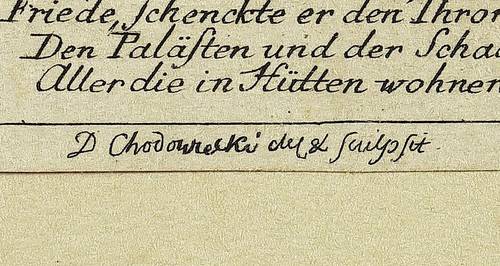 Friede, schenckte er den Thron
Den Palästen und der Scha
Aller die in Hütten wohnen
D Chodowiecki del & sculpsit.